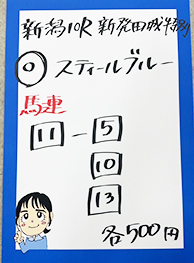 新潟10R 新発田城特別
◎ スティールブルー
馬連
11-5
10
13
各500円